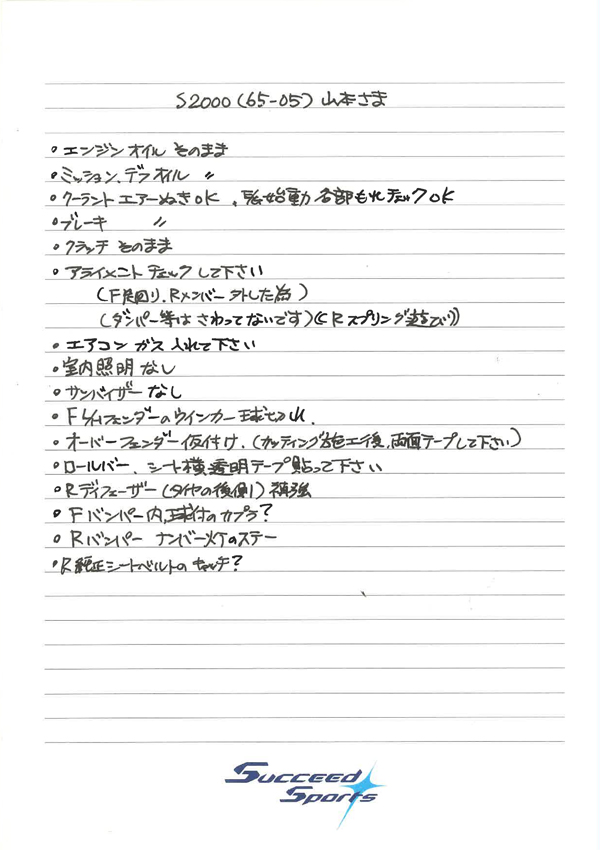 S2000 (65-05) 山本さま
・エンジンオイル そのまま
・ミッション、デフオイル 〃
・クーラント エアーぬきOK、始動 各部もれチェックOK
・ブレーキ 〃
・クラッチ そのまま
・アライメント チェックして下さい
(F足回り、Rメンバー外した為)
(ダンパー等は さわってないです)((Rスプリング遊び))
・エアコン ガス 入れて下さい
・室内照明 なし
・サンバイザー なし
・F L/Hフェンダーのウインカー球切れ.
・オーバーフェンダー仮付け.(カッティング施工後、両面テープして下さい)
・ロールバー、シート横透明テープ貼って下さい
・Rディフューザー(タイヤの後側)補強
・Fバンパー内、球付のカプラ?
・Rバンパー ナンバー灯のステー
・R純正シートベルトの キャッチ?
Succeed
Sports